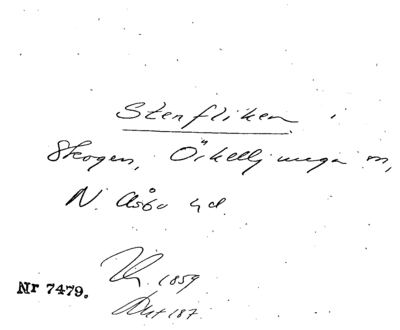 Stenfliken i
Skogen, Örkelljunga sn,
N. Åsbo hd.
1859
Nr 7479.
187